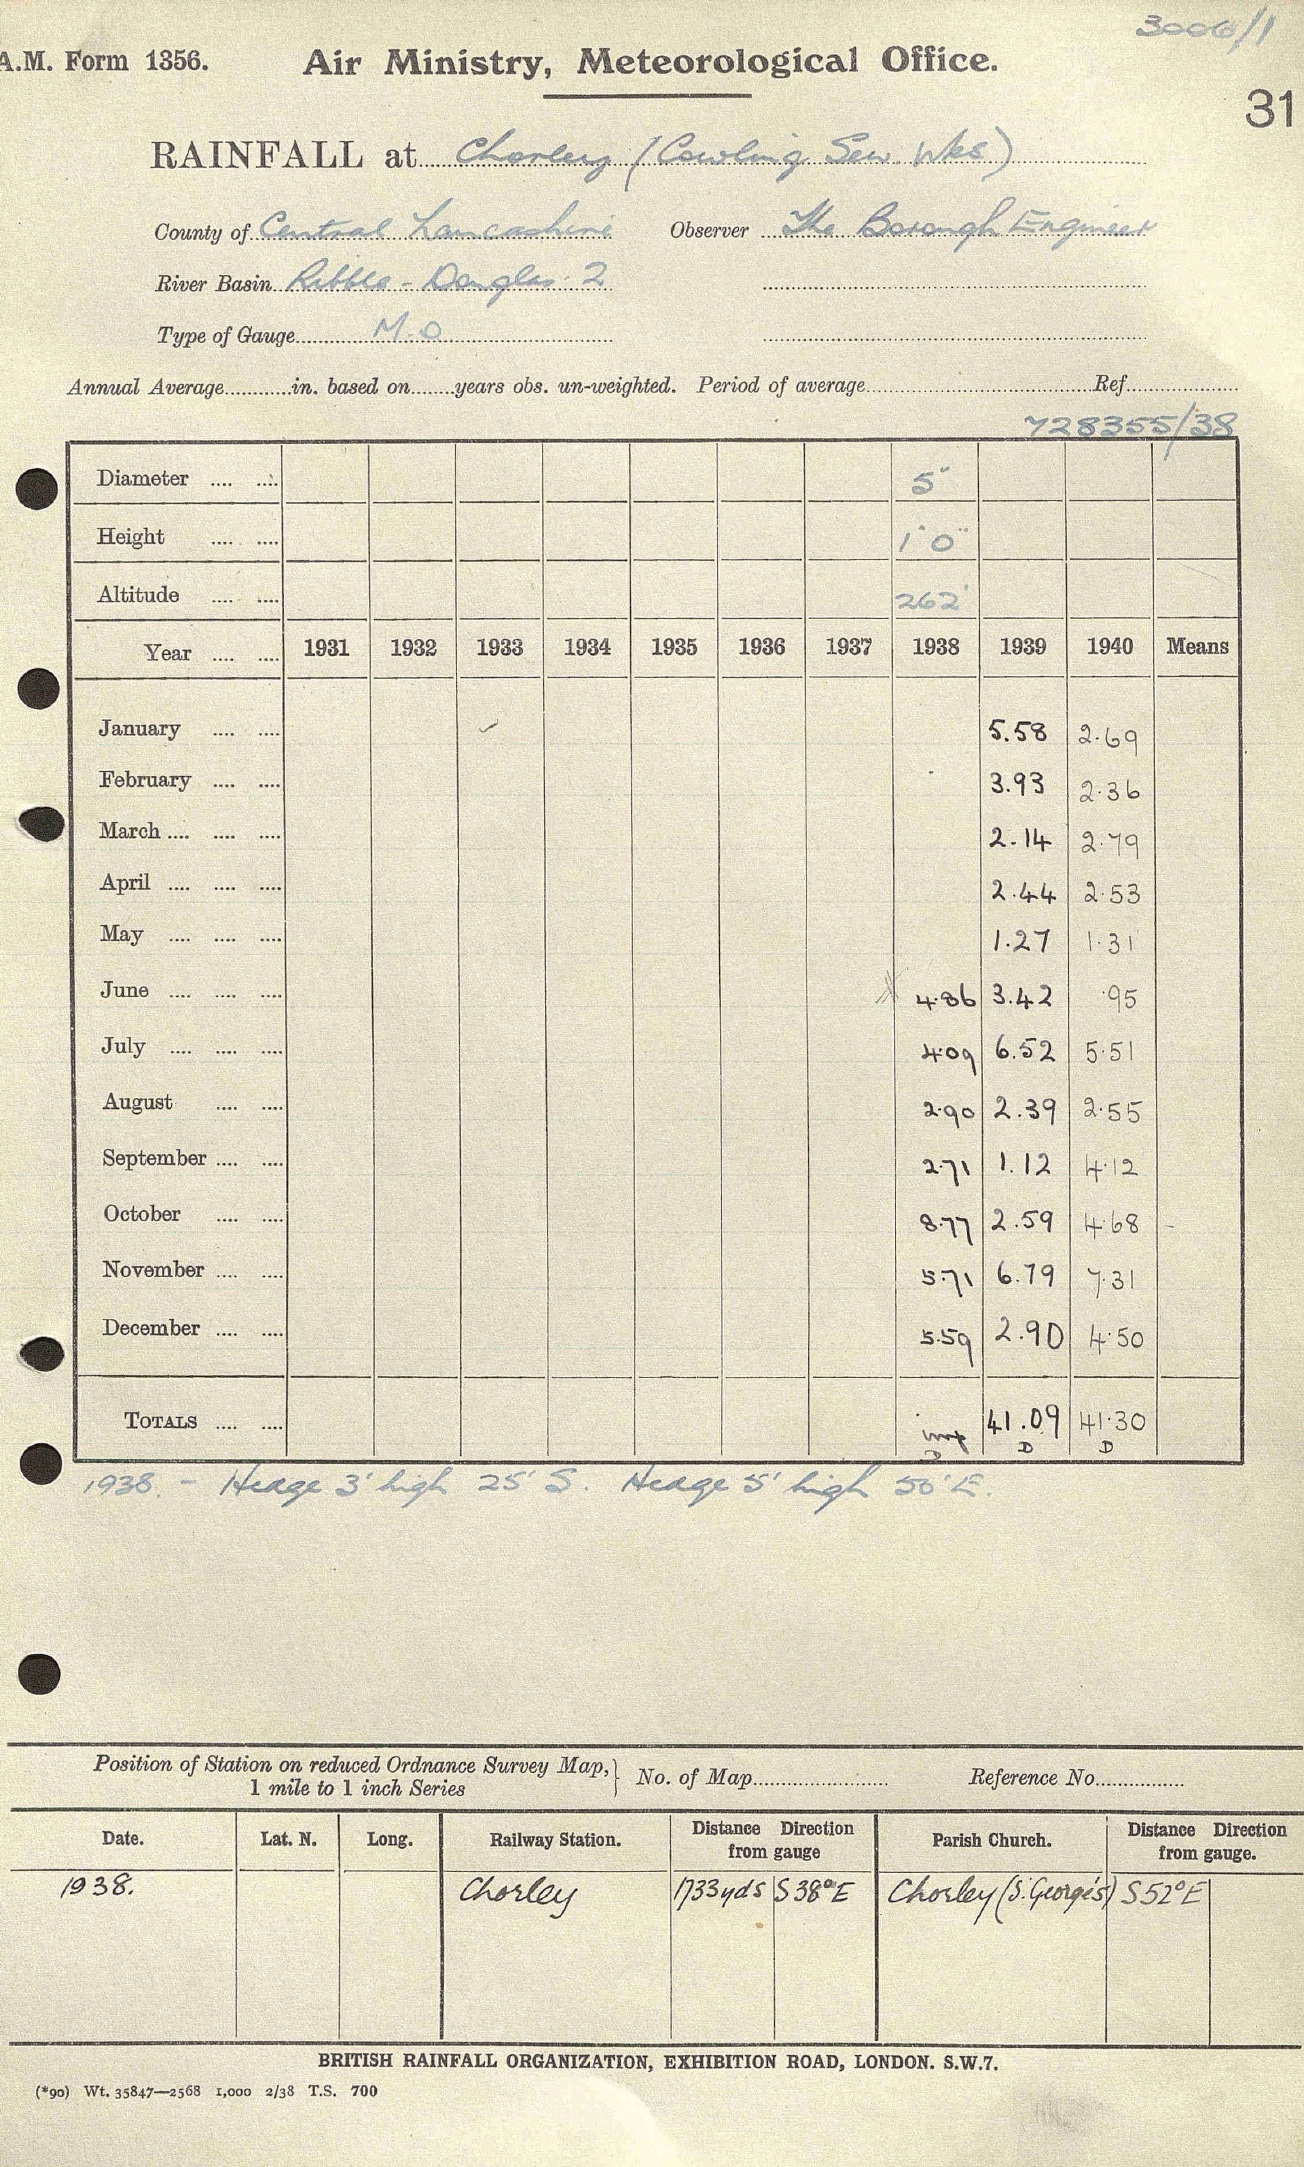 3006/1
A.M. Form 1356. Air Ministry, Meteorological Office.
31
RAINFALL at Chorley (Cowling Sew. Wks)
County of Central Lancashire Observer The Borough Engineer
River Basin Ribble - Douglas 2
Type of Gauge M.O
Annual Average in. based on years obs. un-weighted. Period of average Ref
728355/38
Diameter 5"
Height 1' 0"
Altitude 262'
Year 1931 1932 1933 1934 1935 1936 1937 1938 1939 1940 Means
January 5.58 2.69
February 3.93 2.36
March 2.14 2.79
April 2.44 2.53
May 1.27 1.31
June 4.86 3.42 .95
July 4.09 6.52 5.51
August 2.90 2.39 2.55
September 2.71 1.12 4.12
October 8.77 2.59 4.68
November 5.71 6.79 7.31
December 5.59 2.90 4.50
TOTALS 41.09 41.30
D D D
1938. - Hedge 3' high 25' S. Hedge 5' high 50' E.
Position of Station on reduced Ordnance Survey Map,
1 mile to 1 inch Series } No. of Map Reference No.
Date. Lat. N. Long. Railway Station. Distance Direction from gauge Parish Church. Distance Direction from gauge.
1938. Chorley 1733yds S 38° E Chorley (S. George's) S 52° E
BRITISH RAINFALL ORGANIZATION, EXHIBITION ROAD, LONDON. S.W.7.
(*90) Wt. 35847—2568 1,000 2/38 T.S. 700